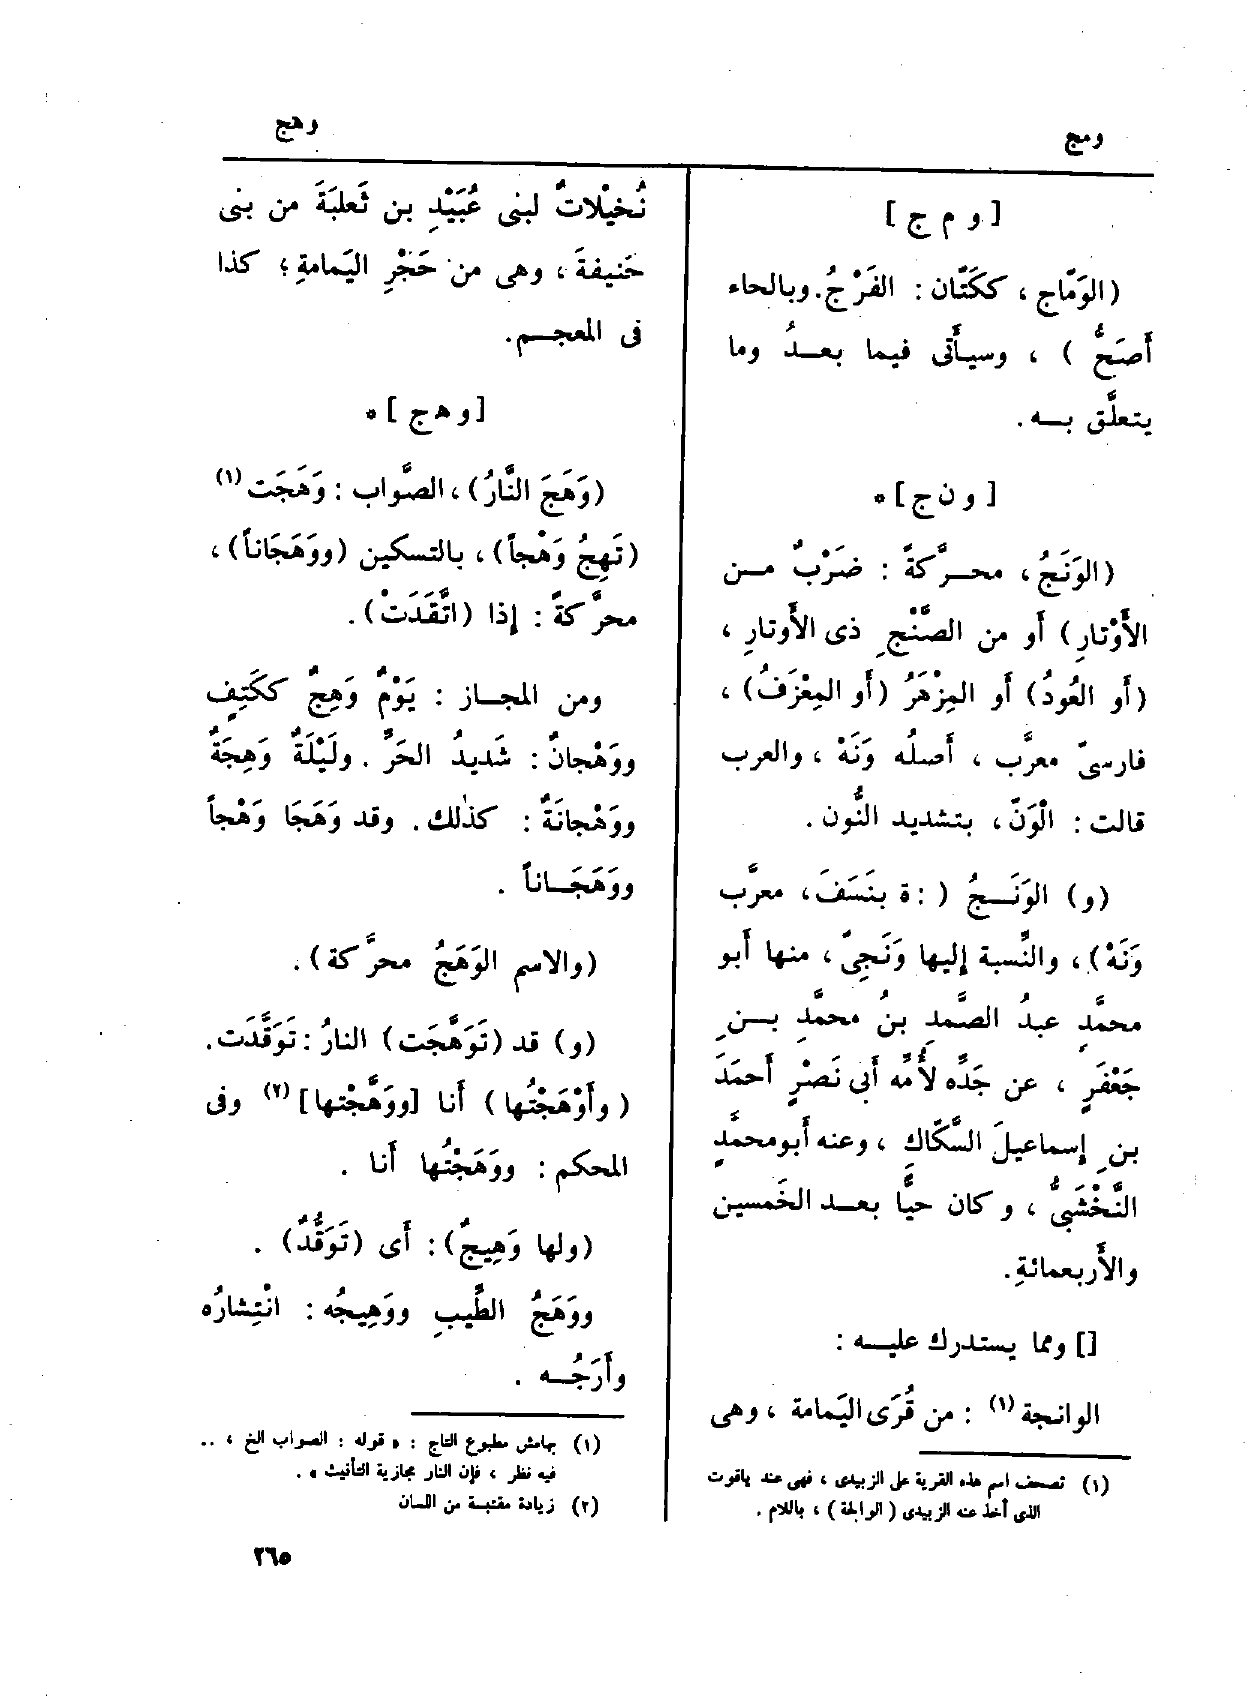 ومج
وهج
[ و م ج ]
(الوَمّاج ، ككَتّان : الفَرْجُ. وبالحاء
أَصَحُّ ) ، وسيأْتى فيما بعــدُ وما
يتعلَّق بــه .
[ و ن ج ] *
(الوَنَجُ، محــرَّكةً : ضَرْبٌ مــن
الأَوْتارِ) أَو من الصَّنْجِ ذى الأَوتارِ ،
(أَو العُودُ) أَو المِزْهَرُ (أَو المِعْزَفُ) ،
فارسىّ معرَّب ، أَصلُه وَنَهْ ، والعرب
قالت : الْوَنّ ، بتشديد النُّون .
(و) الوَنَــجُ ( : ة بنَسَفَ ، معرَّب
وَنَهْ) ، والنِّسبة إليها وَنَجِىّ ، منها أَبو
محمَّدٍ عبدُ الصَّمدِ بنُ محمَّدِ بــنِ
جَعْفَرٍ ، عن جَدِّه لأُمِّه أَبى نَصْرٍ أَحمَدَ
بنِ إسماعيلَ السَّكّاكِ ، وعنه أَبومحمَّدٍ
النَّخْشَبِىُّ ، وكان حيًّا بعــد الخَمسين
والأَربعمائةِ .
[] ومما يستدرك عليــه :
الوانجة (١) : من قُرَى اليَمامة ، وهى
(١) تصحف اسم هذه القرية على الزبيدى ، فهى عند ياقوت
الذى أخذ عنه الزبيدى ( الوالجة ) ، باللام .
نُخيْلاتٌ لبنى عُبَيْدِ بن ثَعلبَةَ من بنى
حَنيفةَ ، وهى من حَجْرِ اليَمامةِ ؛ كذا
فى المعجــم .
[ و هـ ج ] *
(وَهَجَ النَّارُ) ، الصَّواب : وَهَجَت (١)
(تَهِجُ وَهْجاً) ، بالتسكين (ووَهَجَاناً) ،
محرَّكةً : إذا (اتَّقَدَتْ) .
ومن المجــاز : يَوْمٌ وَهِجٌ ككَتِفٍ
ووَهْجانٌ : شَديدُ الحَرِّ . ولَيْلَةٌ وَهِجَةٌ
ووَهْجانَةٌ : كذٰلك . وقد وَهَجَا وَهْجاً
ووَهَجَــاناً .
(والاسم الوَهَجُ محرَّكة) .
(و) قد (تَوَهَّجَت) النارُ : تَوَقَّدَت .
(وأَوْهَجْتُها) أَنا [ووَهَّجْتها] (٢) وفى
المحكم : ووَهَجْتُها أَنا .
(ولها وَهِيجٌ) : أَى (تَوَقُّدٌ) .
ووَهَجُ الطِّيبِ ووَهِيجُه : انْتِشارُه
وأَرَجُــه .
(١) بهامش مطبوع التاج : « قوله : الصواب الخ ، ..
فيه نظر ، فإن النار مجازية التأنيث » .
(٢) زيادة مقتبسة من اللسان
٢٦٥